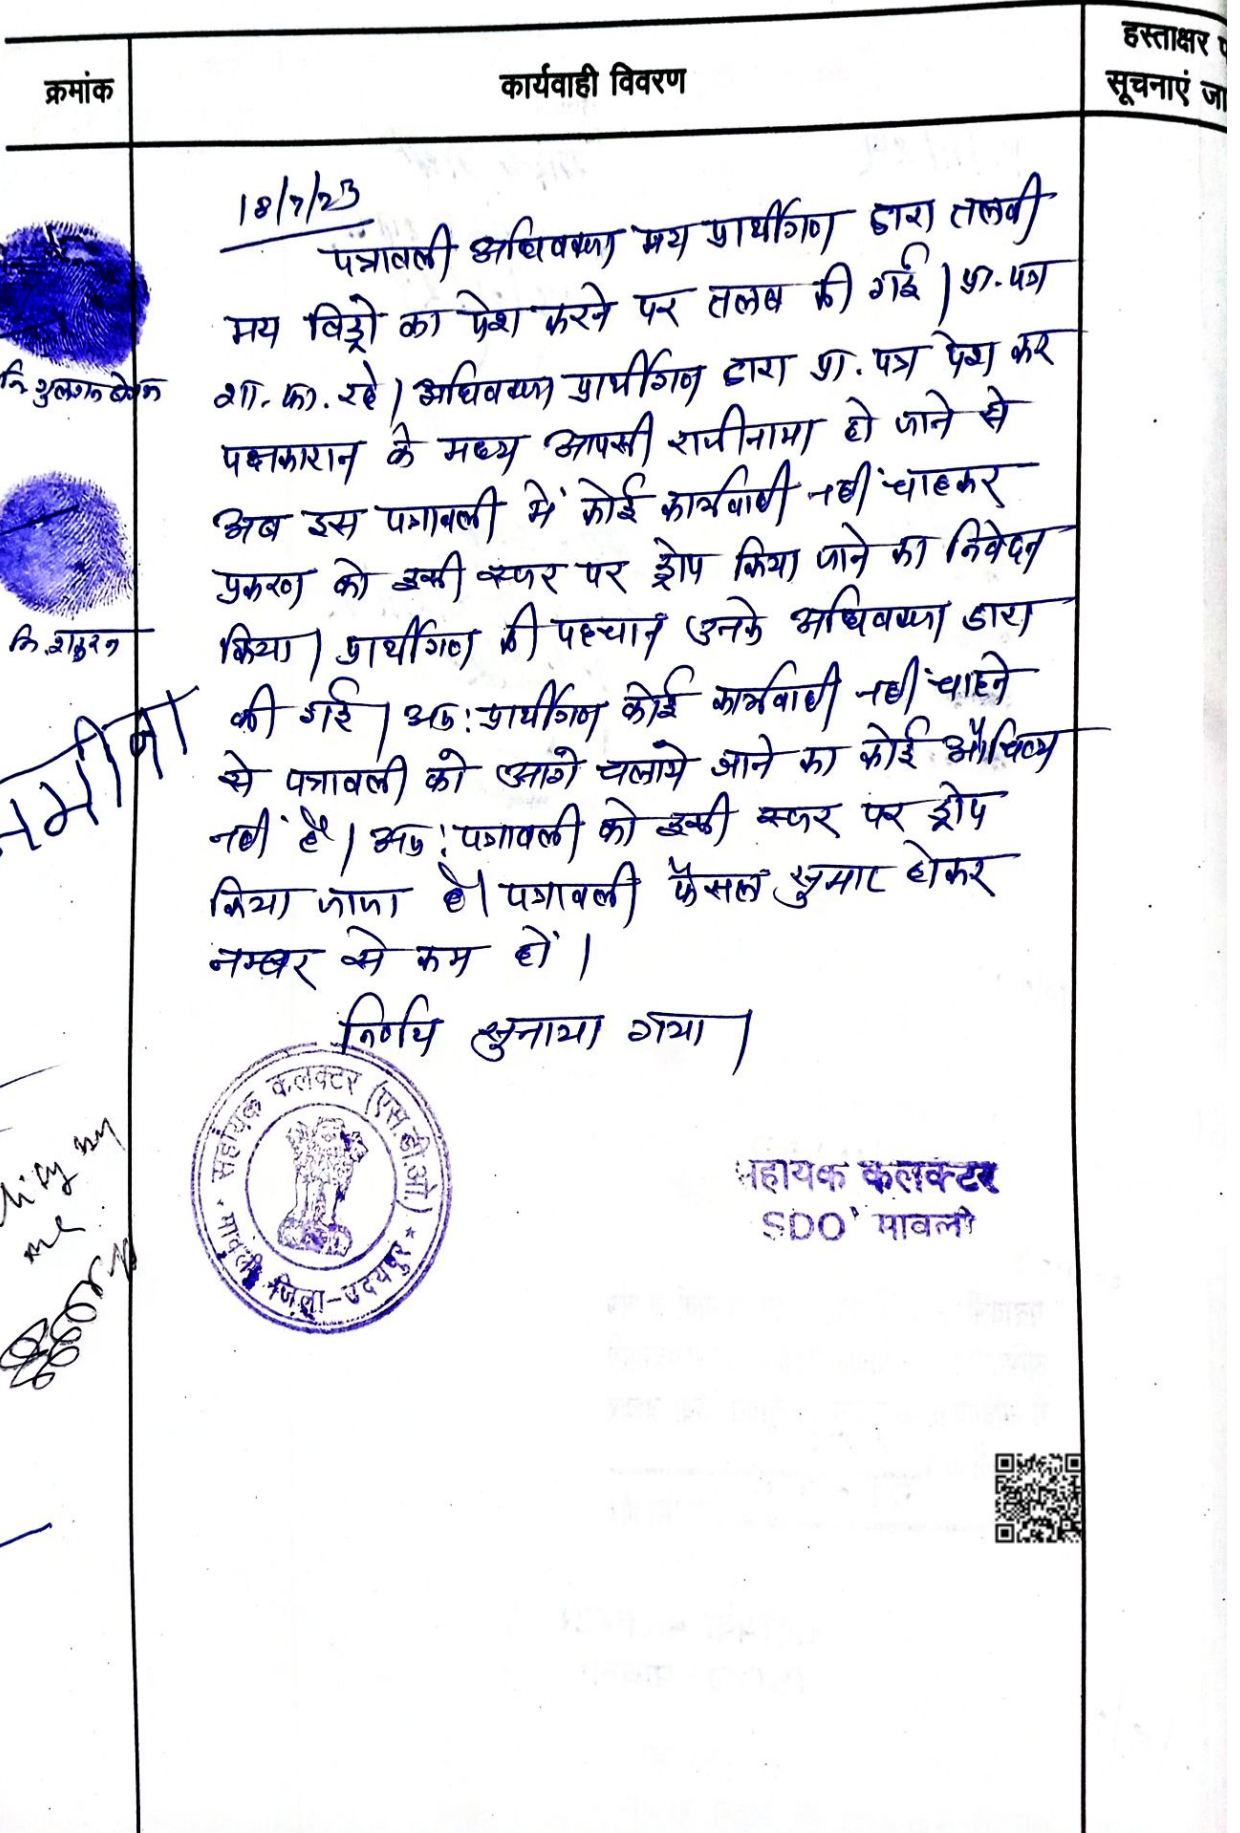 क्रमांक
कार्यवाही विवरण
हस्ताक्षर
सूचनाएं जा
18/7/23
पत्रावली अधिवक्ता मय प्रार्थीगण द्वारा तलबी
मय विड्रो का पेश करने पर तलब की गई। प्रा. पत्र
शा. फा. रहे। अधिवक्ता प्रार्थीगण द्वारा प्रा. पत्र पेश कर
पक्षकारान के मध्य आपसी राजीनामा हो जाने से
अब इस पत्रावली में कोई कार्यवाही नहीं चाहकर
प्रकरण को इसी स्तर पर ड्रोप किया जाने का निवेदन
किया। प्रार्थीगण की पहचान उनके अधिवक्ता द्वारा
की गई। अतः प्रार्थीगण कोई कार्यवाही नहीं चाहने
से पत्रावली को आगे चलाये जाने का कोई औचित्य
नहीं है। अतः पत्रावली को इसी स्तर पर ड्रोप
किया जाता है। पत्रावली फैसल सुमार होकर
नम्बर से कम हो।
निर्णय सुनाया गया।
सहायक कलक्टर (एस.डी.ओ.)
मावली, जिला-उदयपुर
सहायक कलक्टर
SDO मावली
me